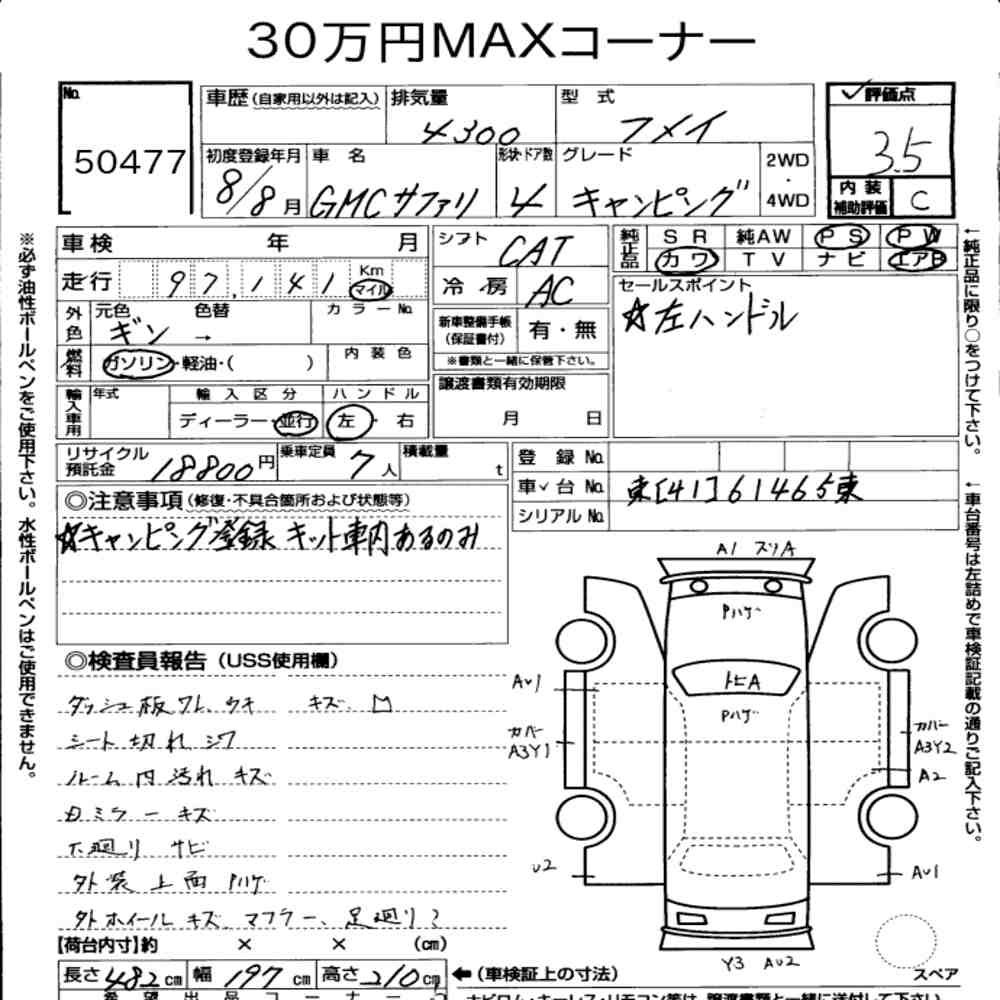 30万円MAXコーナー
No. 50477
車歴(自家用以外は記入) 排気量 4300 型式 フメイ
評価点 3.5
初度登録年月 8/8月 車名 GMCサファリ 形状・ドア数 4 グレード キャンピング 2WD・4WD
内装補助評価 C
車検 年 月
シフト CAT
純正品 SR 純AW PS PW
カワ TV ナビ エアB
走行 97,141 Km マイル
冷房 AC
セールスポイント
☆左ハンドル
外色 元色 ギン → 色替 カラーNo.
新車整備手帳(保証書付) 有・無
※書類と一緒に保管下さい。
燃料 ガソリン・軽油・( ) 内装色
譲渡書類有効期限
月 日
輸入車用 年式 輸入区分 ハンドル
ディーラー・並行 左・右
リサイクル預託金 18800円 乗車定員 7人 積載量 t
登録No.
車台No. 東[41]61465東
シリアルNo.
◎注意事項(修復・不具合箇所および状態等)
☆キャンピング登録 キット車内あるのみ
◎検査員報告(USS使用欄)
ダッシュ板ワレ ウキ キズ
シート切れ シワ
ルーム内汚れ キズ
ミラーキズ
下廻りサビ
外装上面Pハゲ
外ホイールキズ マフラー、足廻りサ
A1 スリA
Pハゲ
トビA
Pハゲ
AU1
カバー A3Y1
カバー A3Y2
A2
U2
AU1
Y3 AU2
スペア
【荷台内寸】約 × × (cm)
長さ482cm 幅197cm 高さ210cm
←(車検証上の寸法)
※必ず油性ボールペンをご使用下さい。水性ボールペンはご使用できません。
←純正品に限り○をつけて下さい。
←車台番号は左詰めで車検証記載の通りご記入下さい。